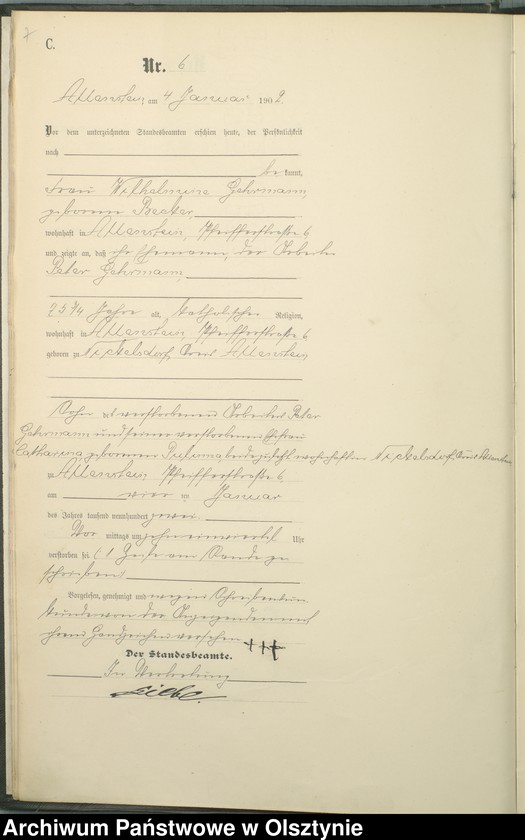 C.
Nr. 6
Allenstein, am 4 Januar 1902.
Vor dem unterzeichneten Standesbeamten erschien heute, der Persönlichkeit
nach
be kannt,
Frau Wilhelmine Gehrmann,
geborene Becker
wohnhaft in Allenstein, Pfeifferstraße 6
und zeigte an, daß ihr Ehemann, der Arbeiter
Peter Gehrmann,
75 3/4 Jahre alt, katholischer Religion,
wohnhaft in Allenstein, Pfeifferstraße 6
geboren zu Nickelsdorf, Kreis Allenstein
Sohn des verstorbenen Arbeiters Peter
Gehrmann und seiner verstorbenen Ehefrau
Catharina geborenen beide zuletzt wohnhaft in Nickelsdorf, Kreis Allenstein
zu Allenstein Pfeifferstraße 6
am vier ten Januar
des Jahres tausend neunhundert zwei
Vor mittags um zehn einviertel Uhr
verstorben sei. (1 Zeile am Rande ge
schrieben)
Vorgelesen, genehmigt und wegen Schreibensun
kunde von der Anzeigenden mit
ihrem Handzeichen versehen +++
Der Standesbeamte.
In Vertretung
Archiwum Państwowe w Olsztynie